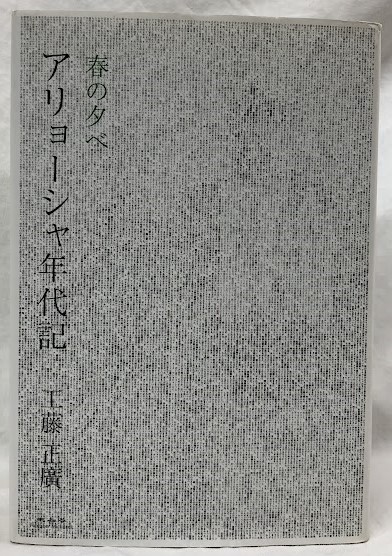 春の夕べ
アリョーシャ年代記
工藤正廣
未知谷